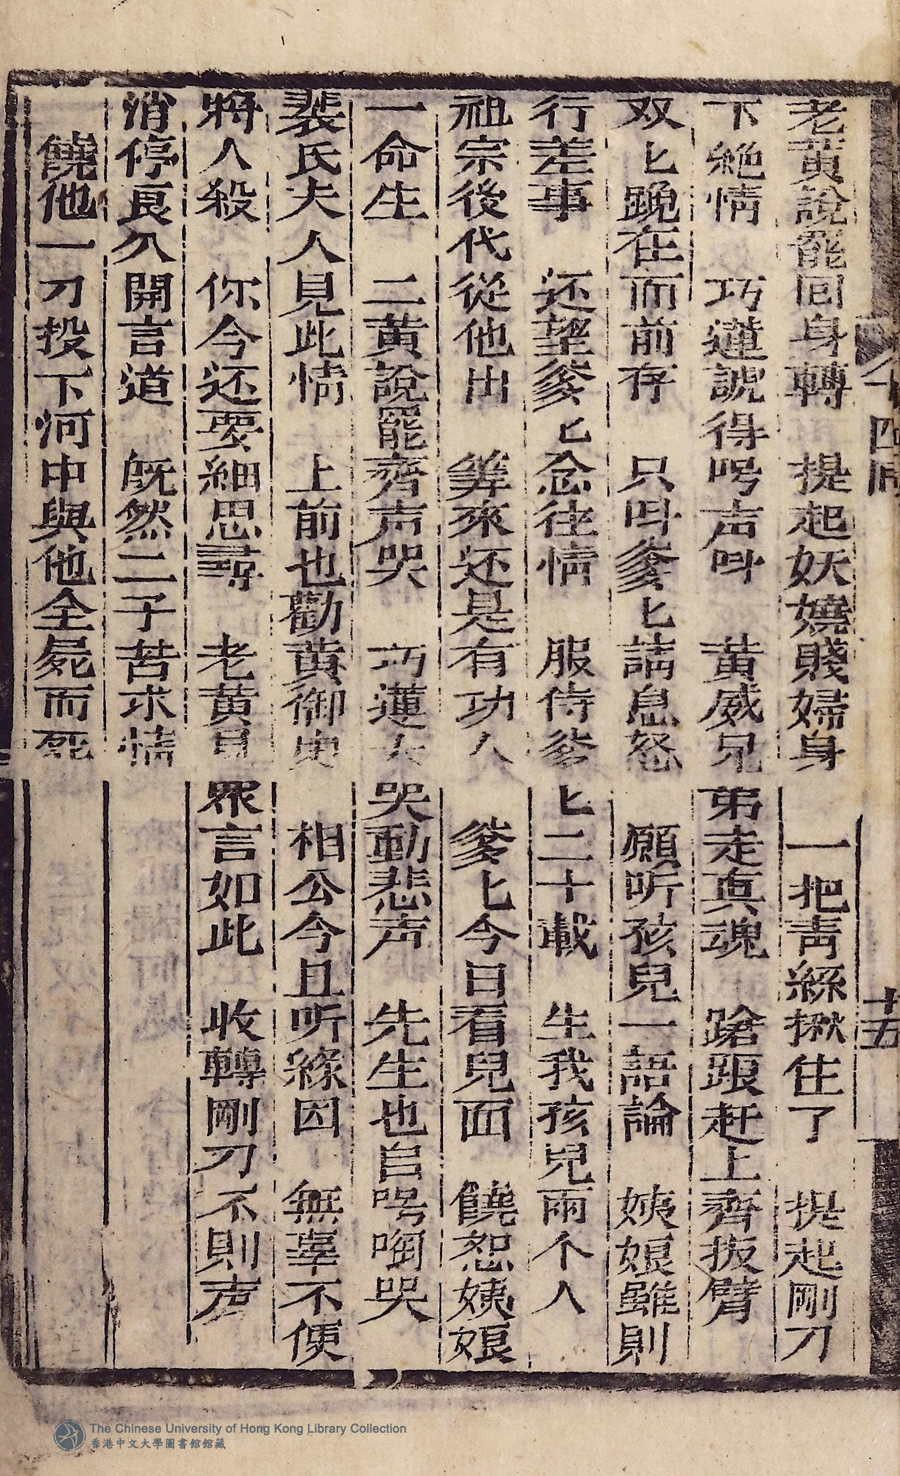 老黃說罷回身轉　提起妖嬈賤婦身　一把青絲揪住了　提起剛刀
下絶情　巧蓮諕得呺声呌　黃威兄弟走真魂　蹌踉赶上齊扳臂
双匕跪在面前存　只呌爹匕請息怒　願听孩兒一語論　姨娘雖則
行差事　还望爹匕念往情　服侍爹匕二十載　生我孩兒兩个人
祖宗後代從他出　筭來还是有功人　爹匕今日看兒面　饒恕姨娘
一命生　二黃說罷齊声哭　巧蓮大哭動悲声　先生也自呺啕哭
裴氏夫人見此情　上前也勸黃御史　相公今且听緣因　無辜不便
將人殺　你今还要細思尋　老黃見眾言如此　收轉剛刀不則声
消停良久開言道　旣然二子苦求情
饒他一刀投下河中與他全屍而死
十四囘
十五
The Chinese University of Hong Kong Library Collection
香港中文大學圖書館館藏